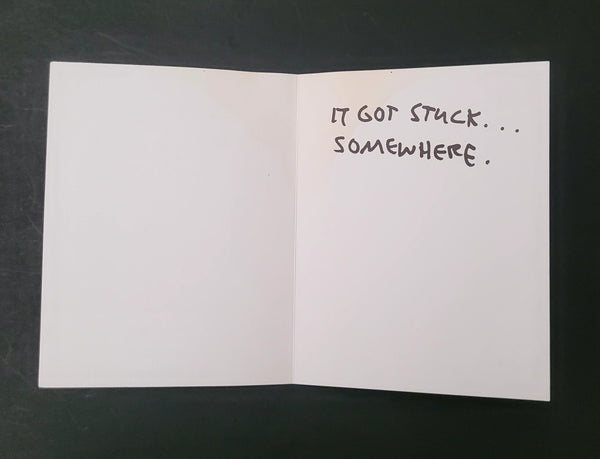 IT GOT STUCK...
SOMEWHERE.